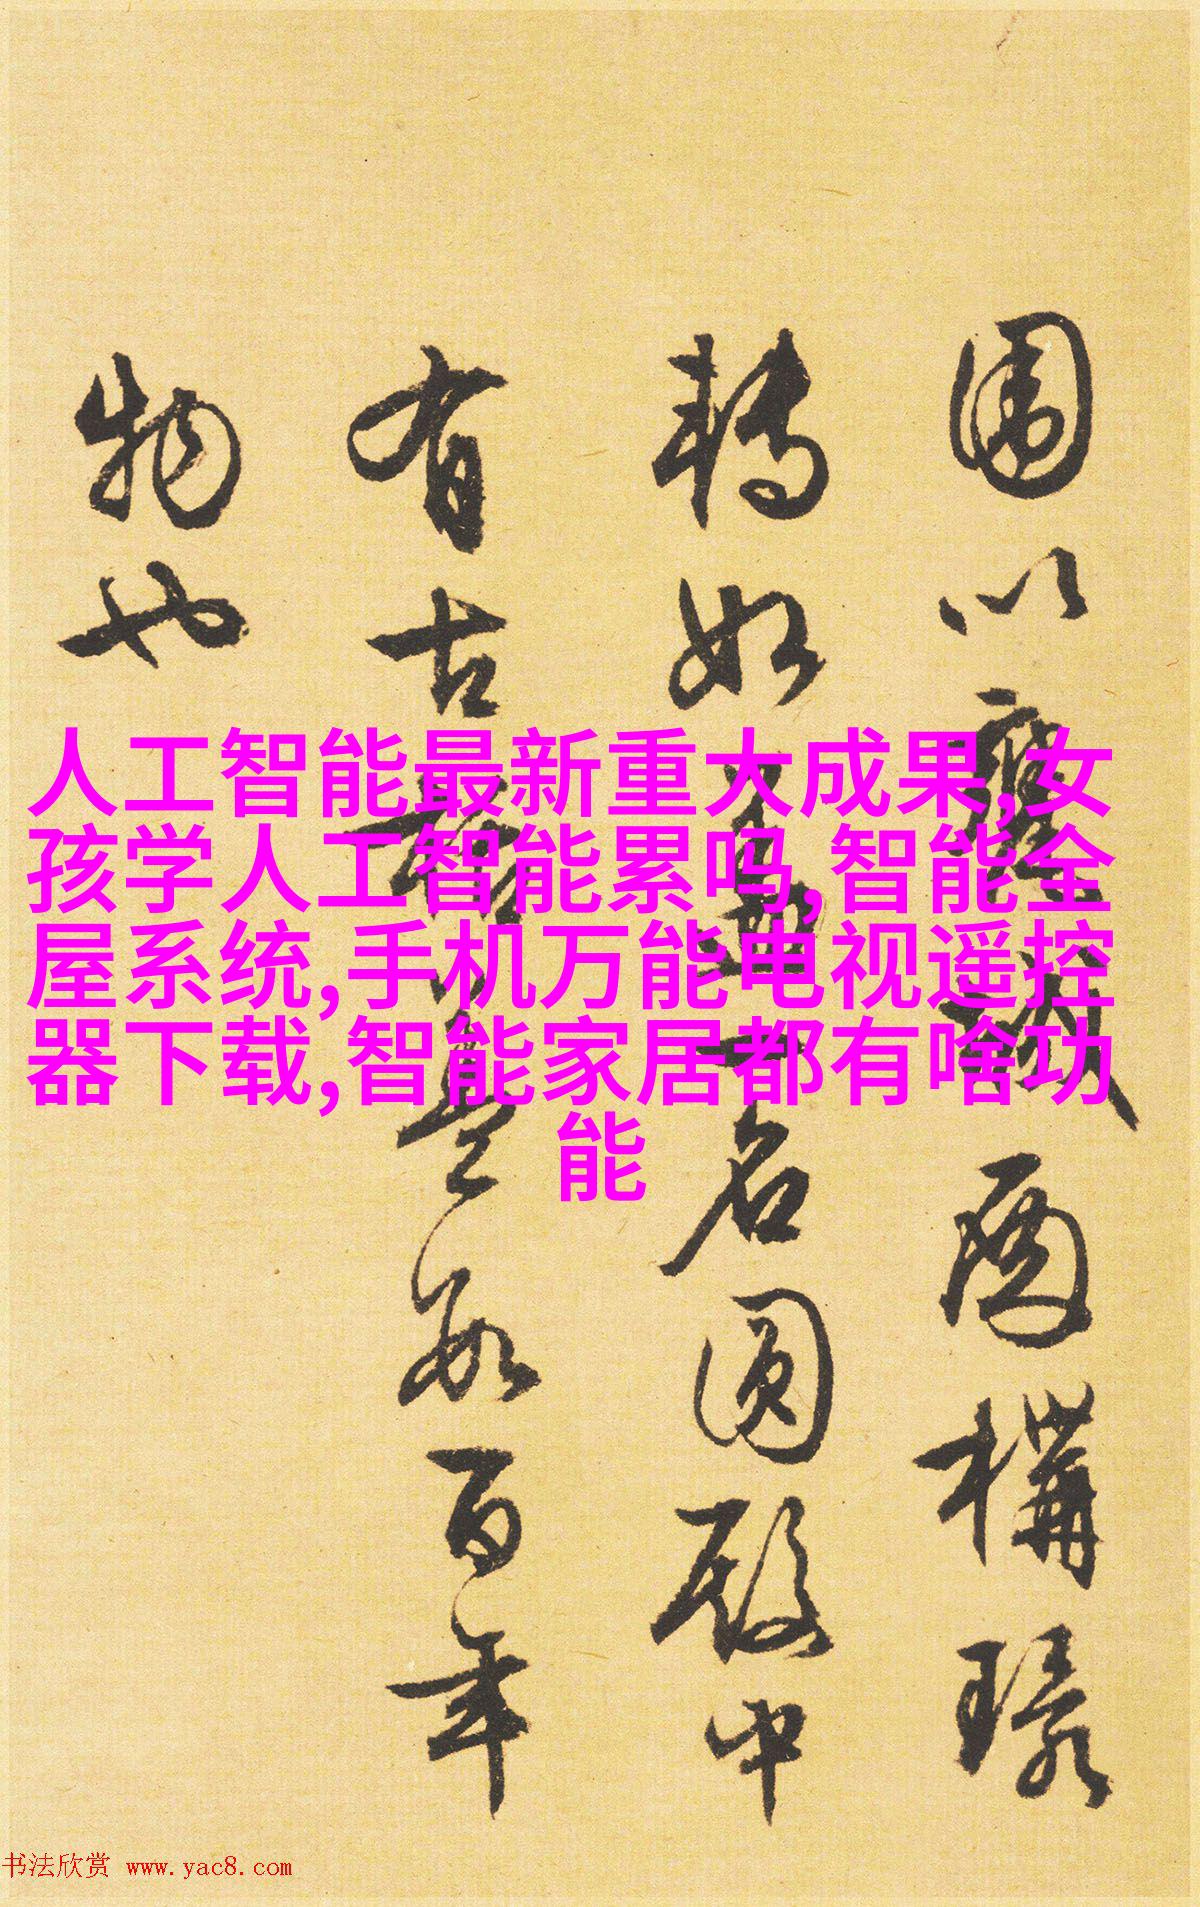 圍以
而構璟
轉如
名圓殿中
有古
數百年
物也
人工智能最新重大成果,女
孩学人工智能累吗,智能全
屋系统,手机万能电视遥控
器下载,智能家居都有啥功
能
书法欣赏 www.yac8.com